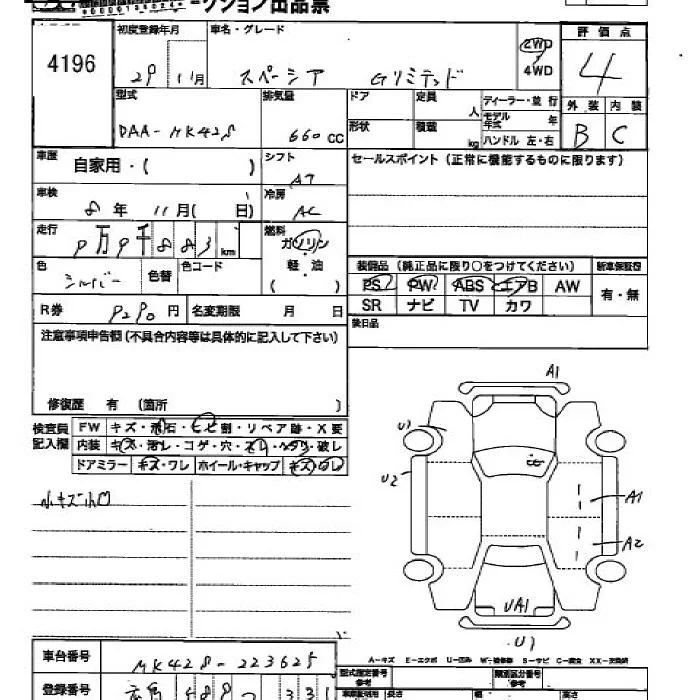 ーション出品票
4196
初度登録年月 車名・グレード 評価点
29 11月 スペーシア Gリミテッド 2WD 4WD 4
型式 排気量 ドア 定員 人 ディーラー・並行 外装 内装
DAA-MK42S 660CC 形状 積載 kg モデル年式 年 B C
ハンドル 左・右
車歴 自家用・( ) シフト AT セールスポイント(正常に機能するものに限ります)
車検 8年 11月( 日) 冷房 AC
走行 9万9千883km 燃料 ガソリン
軽・油
( )
色 シルバー 色替 色コード 装備品(純正品に限り○をつけてください) 新車保証書
PS PW ABS エアB AW 有・無
SR ナビ TV カワ
R券 9290円 名変期限 月 日 後日品
注意事項申告欄(不具合内容等は具体的に記入して下さい)
修復歴 有 (箇所 )
検査員記入欄 FW キズ・飛石・ヒビ割・リペア跡・X要
内装 キズ・汚レ・コゲ・穴・スレ・ヘタリ・破レ
ドアミラー キズ・ワレ ホイール・キャップ キズ・ワレ
小キズ小凹
A1
U1
U2
A1
A2
UA1
U1
A-キズ E-エクボ U-凹み W-補修跡 S-サビ C-腐食 XX-交換済
車台番号 MK42S-223625 型式指定番号 参考 類別区分番号 参考
登録番号 広島 車車証明用 長さ 幅 高さ